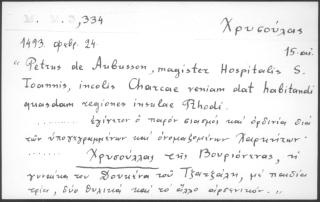 M. M. 3, 334
Χρυσούλας
15. αι.
1493. φεβρ. 24.
"Petrus de Aubusson, magister Hospitalis S.
Ioannis, incolis Charcae veniam dat habitandi
quasdam regiones insulae Rhodi.
......... ἐγίνετον ὁ παρὸν ὁρισμὸς καὶ ὀρδινία διὰ
τῶν ὑπογεγραμμένων καὶ ὀνομαζομένων Χαρκητῶν.
......... Χρυσούλλας τῆς Βουριότενας, ἡ
γυναῖκα του Δουκένα τοῦ Τζατζάλη, μὲ παιδία
τρία, δύο θηλικὰ καὶ τὸ ἄλλο ἀρσενικόν.."